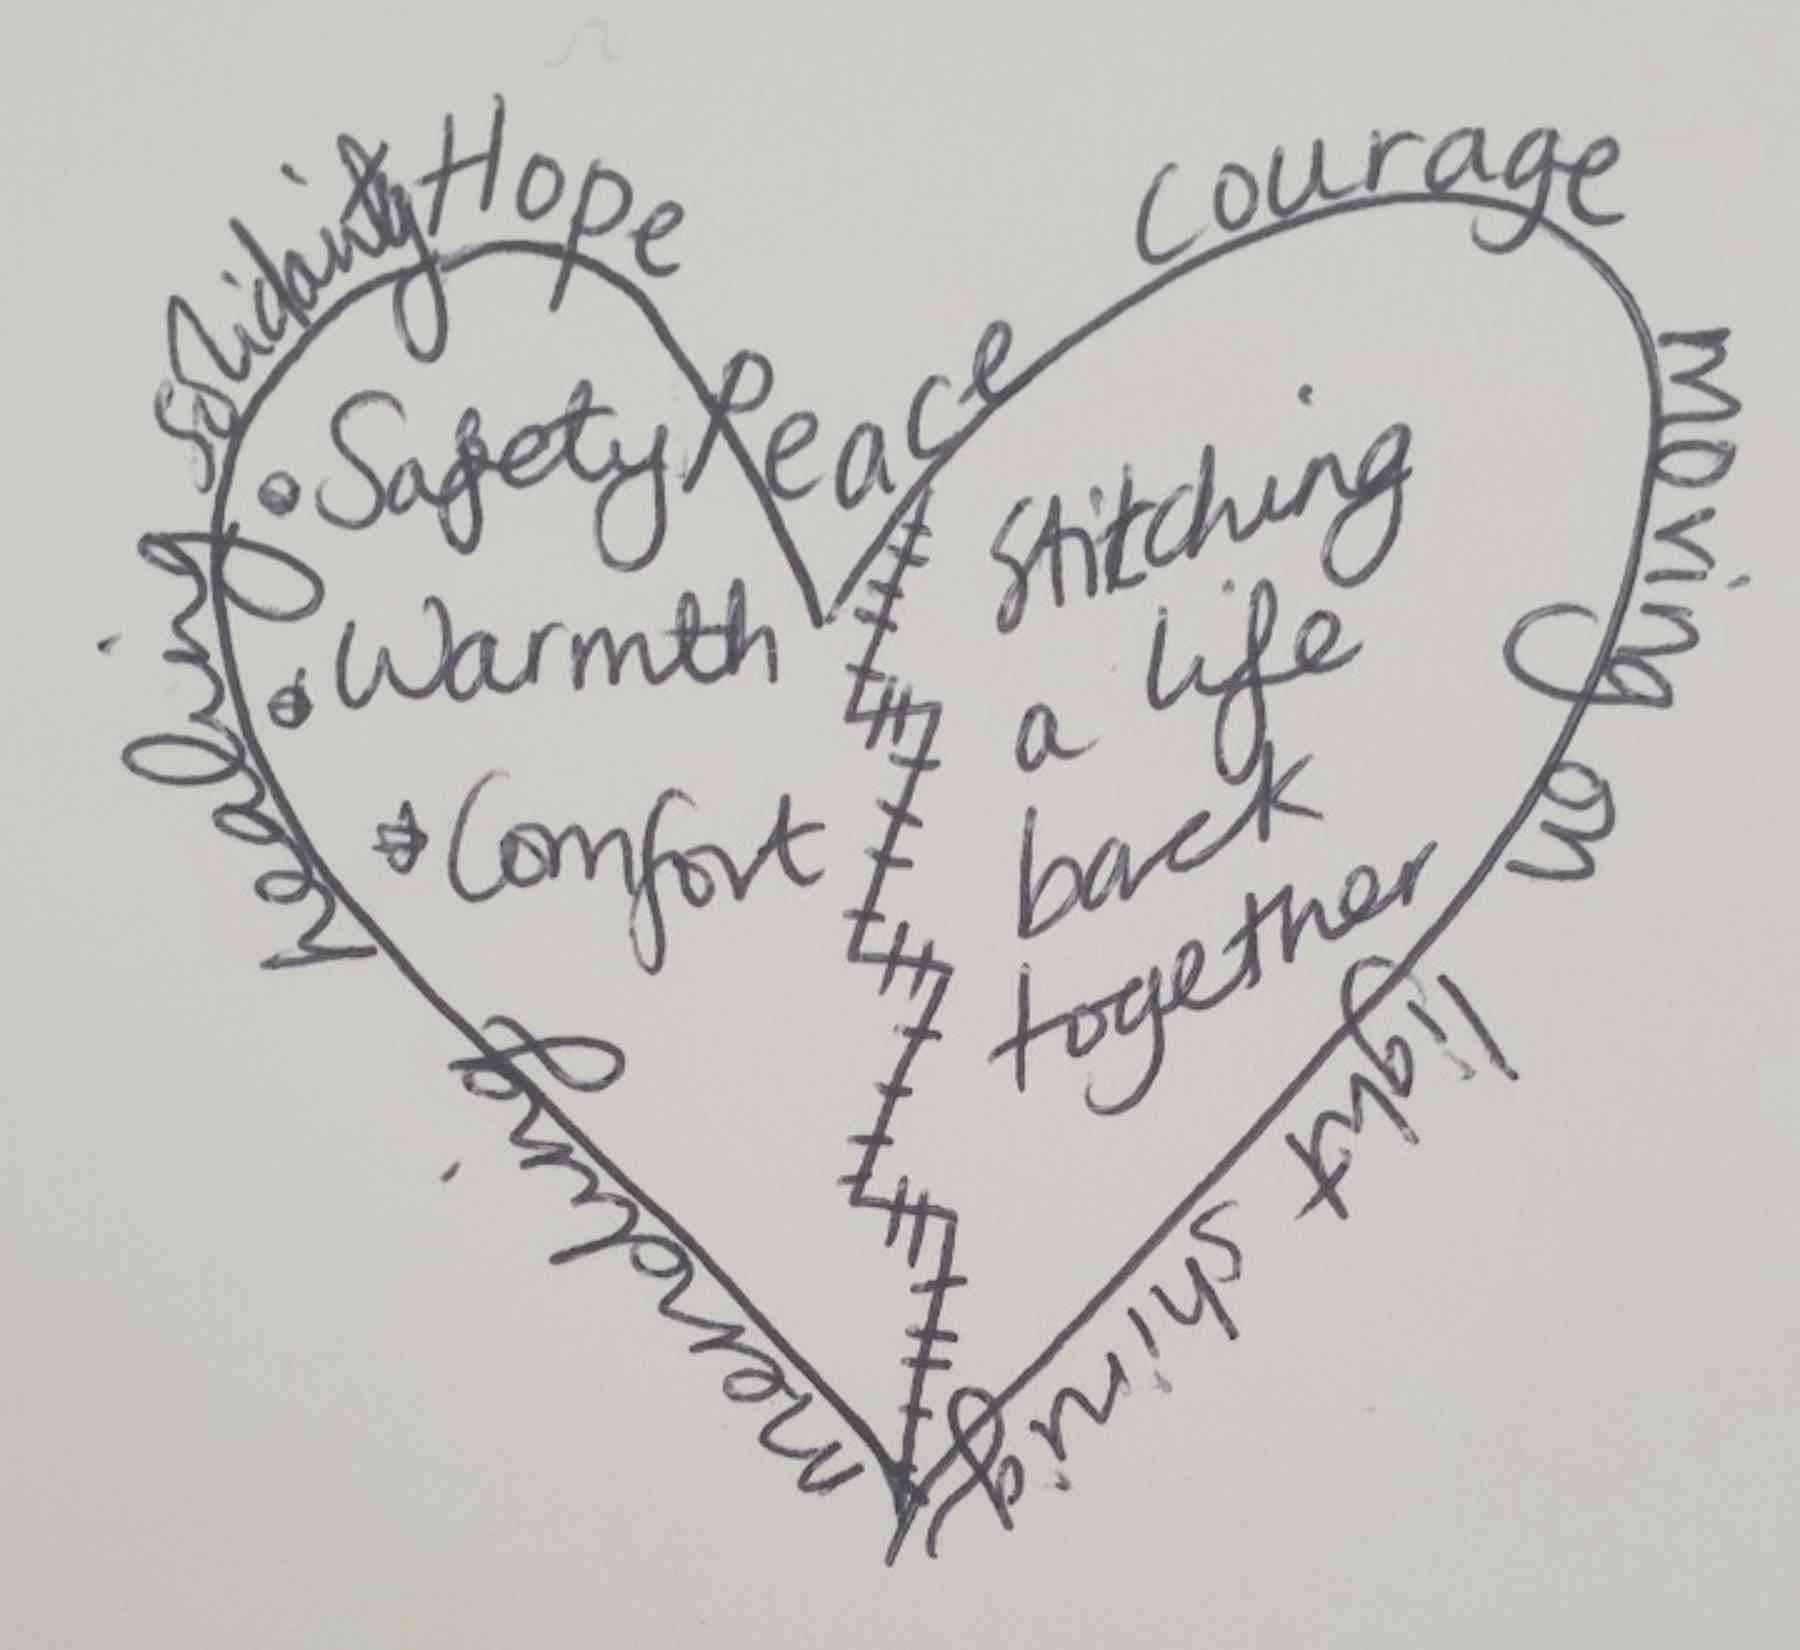 Solidarity
Hope
Peace
Courage
Moving on
light shining
new dawning
Healing
Safety
Warmth
Comfort
Stitching
a life
back
together